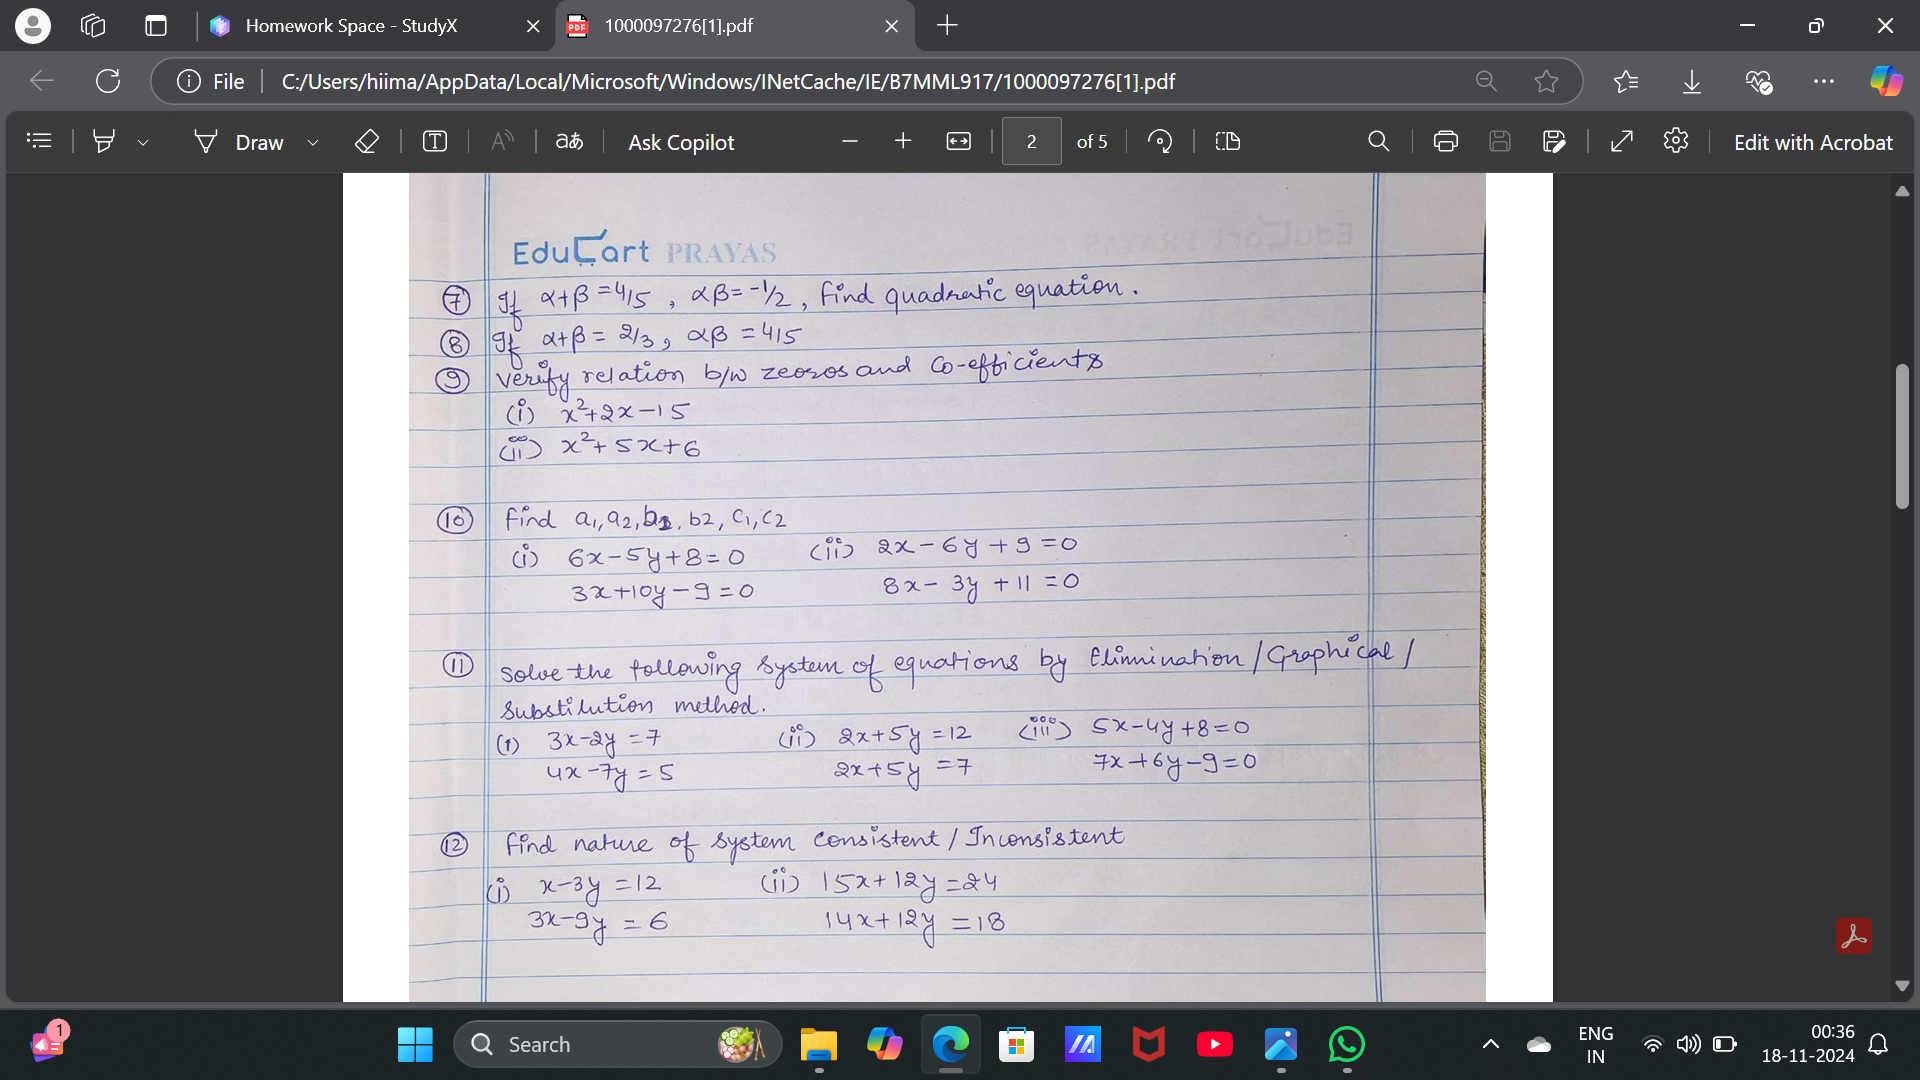 Homework Space - StudyX
1000097276[1].pdf
File
C:/Users/hiima/AppData/Local/Microsoft/Windows/INetCache/IE/B7MML917/1000097276[1].pdf
Draw
T
A
aあ
Ask Copilot
2 of 5
Edit with Acrobat
EduCart PRAYAS
⑦ If α+β=4/5, αβ=-1/2, find quadratic equation.
⑧ If α+β = 2/3, αβ = 4/5
⑨ Verify relation b/w zeoros and Co-efficients
(i) x²+2x-15
(ii) x²+5x+6
⑩ find a₁,a₂,b₁,b2,c₁,c2
(i) 6x-5y+8=0 (ii) 2x-6y+9=0
3x+10y-9=0 8x-3y+11=0
⑪ Solve the following system of equations by Elimination/Graphical/
Substitution method.
(i) 3x-2y=7 (ii) 2x+5y=12 (iii) 5x-4y+8=0
4x-7y=5 2x+5y=7 7x+6y-9=0
⑫ find nature of system consistent/Inconsistent
(i) x-3y=12 (ii) 15x+12y=24
3x-9y=6 14x+12y=18
1
Search
ENG
IN
00:36
18-11-2024